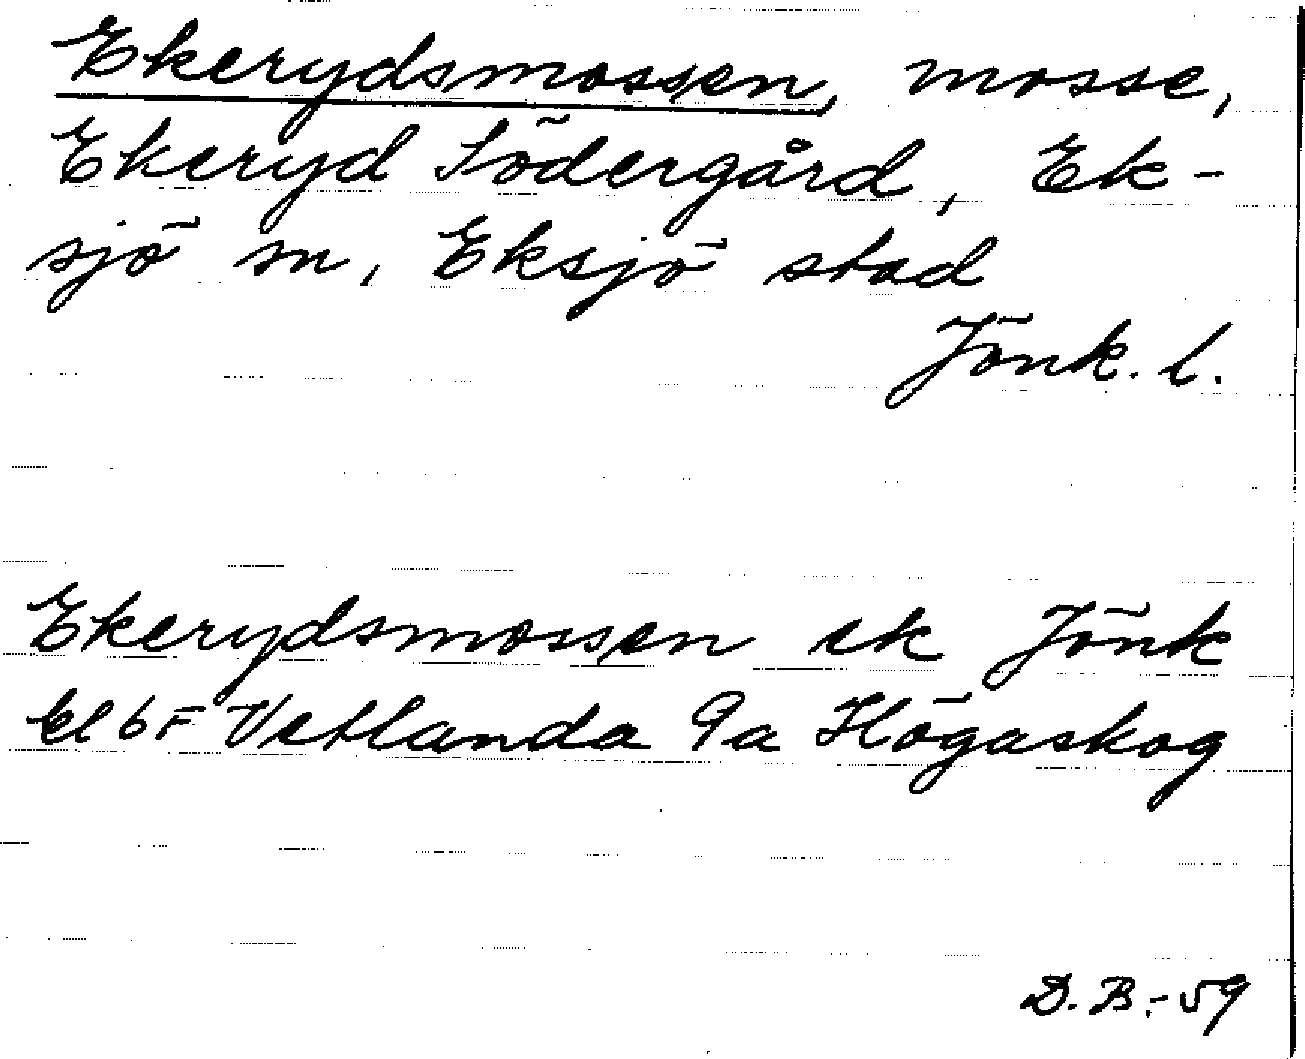 Ekerydsmossen, mosse,
Ekeryd Södergård, Ek-
sjö sn, Eksjö stad
Jönk. l.
Ekerydsmossen ek Jönk
El 6F Vetlanda 9a Högaskog
D.B.-59